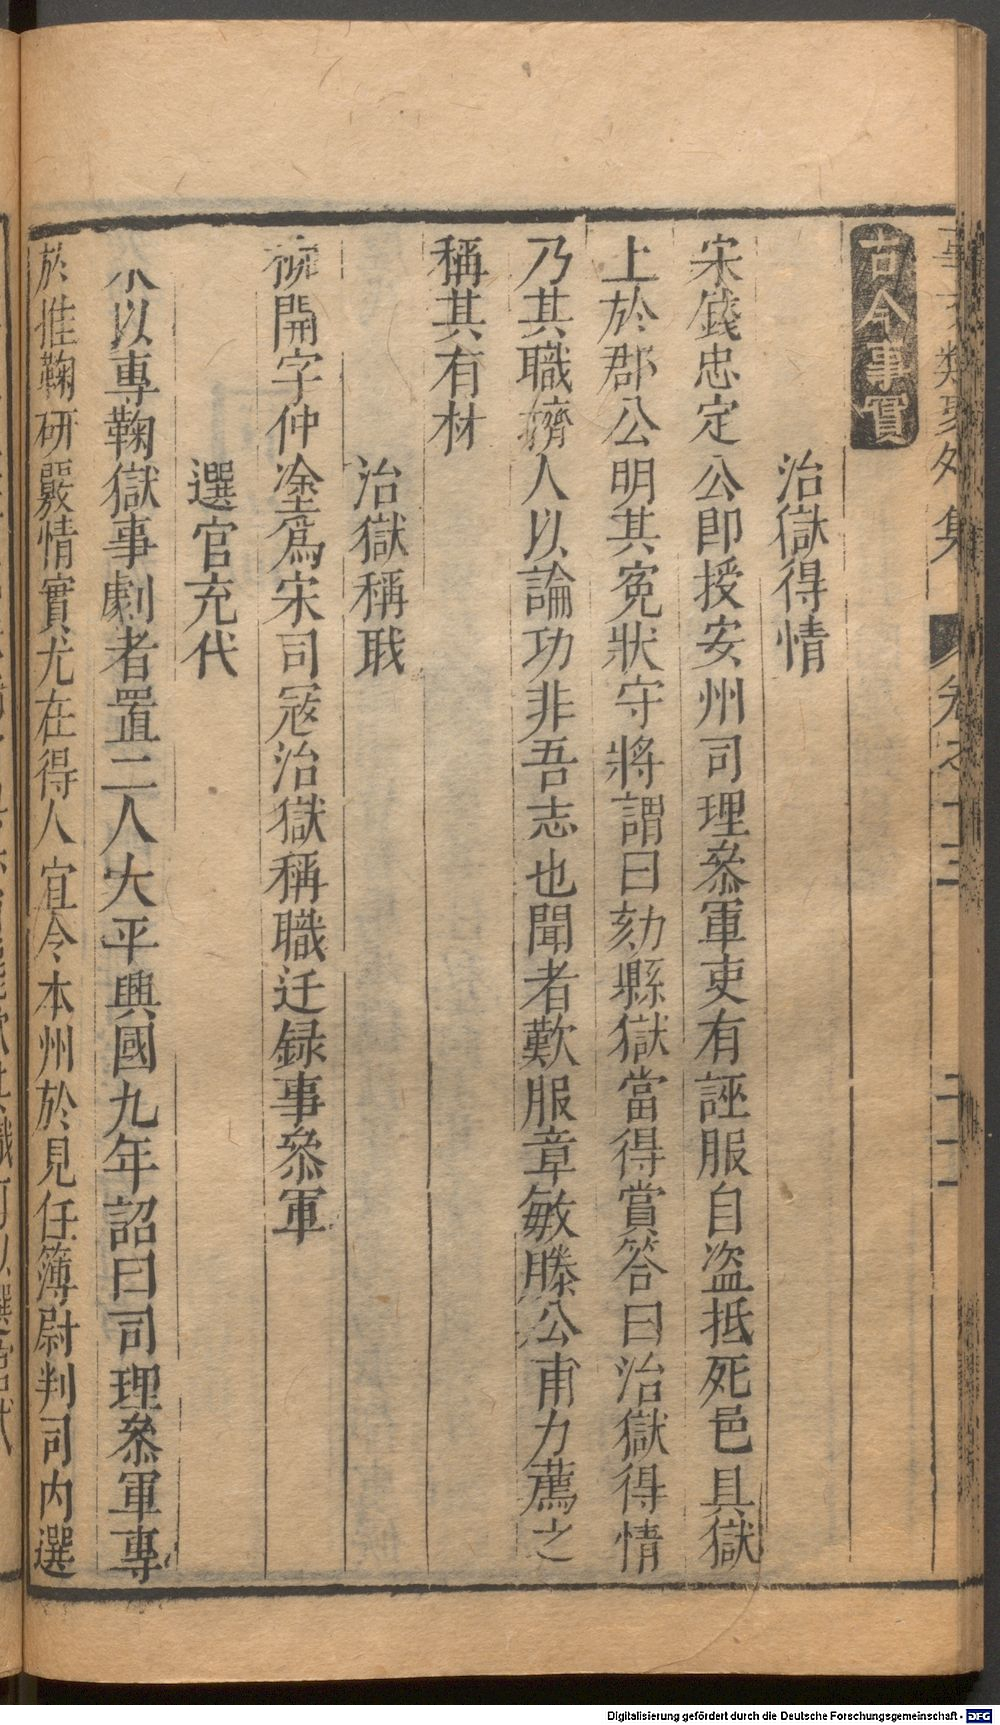 類聚外集 卷之十三
古今事實
治獄得情
宋錢忠定公即授安州司理叅軍吏有誣服自盜抵死邑具獄
上於郡公明其寃狀守將謂曰劾縣獄當得賞答曰治獄得情
乃其職擠人以論功非吾志也聞者歎服章敏滕公甫力薦之
稱其有材
治獄稱耺
柳開字仲塗爲宋司㓂治獄稱職迁録事叅軍
選官充代
以專鞠獄事劇者置二人大平興國九年詔曰司理叅軍專
於推鞠研覈情實尤在得人宜令本州於見任簿尉判司内選
Digitalisierung gefördert durch die Deutsche Forschungsgemeinschaft - DFG